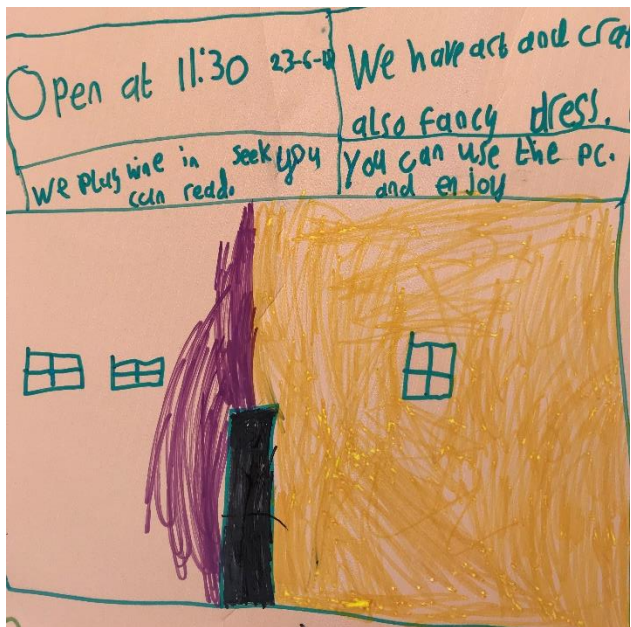 Open at 11:30 23-6-
We have art and cra
also fancy dress.
we plus wine in seek you
can read.
you can use the pc.
and enjoy